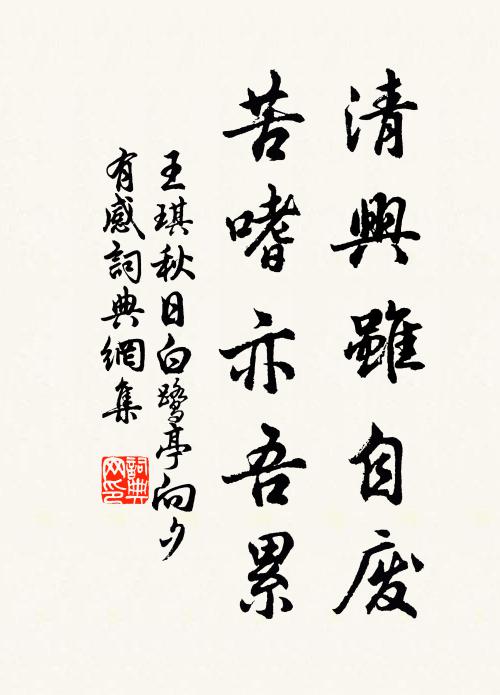 清興雖自废
苦嗜亦吾累
王琪秋日白鹭亭向夕
有感詞典網集
詞典网印